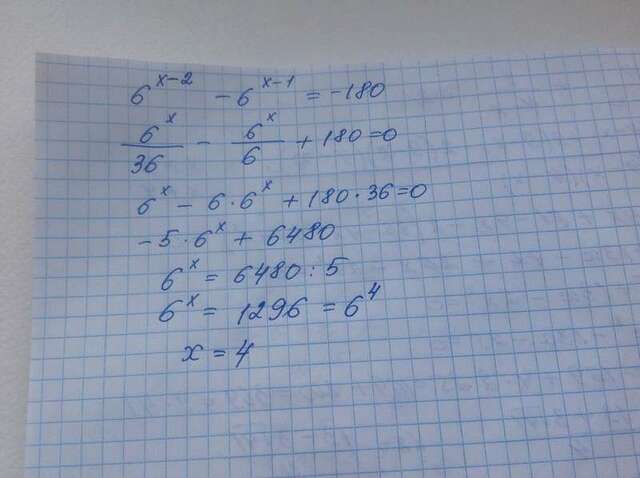 6^{x-2} - 6^{x-1} = -180
\frac{6^x}{36} - \frac{6^x}{6} + 180 = 0
6^x - 6 · 6^x + 180 · 36 = 0
-5 · 6^x + 6480
6^x = 6480 : 5
6^x = 1296 = 6^4
x = 4